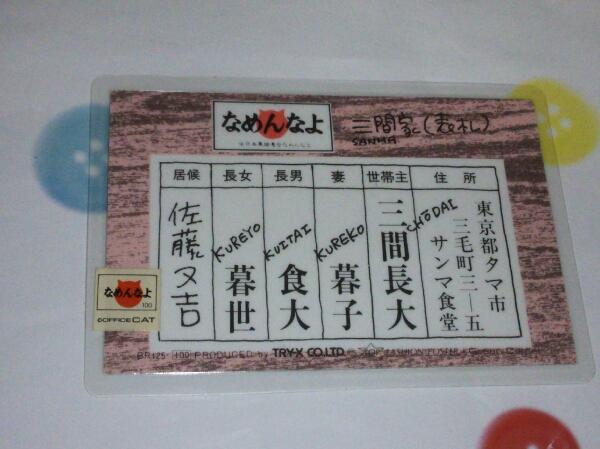 なめんなよ
三間家(表札)
SANMA
住所
東京都タマ市
三毛町三―五
サンマ食堂
世帯主
三間長大
CHŌDAI
妻
暮子
KUREKO
長男
食大
KUITAI
長女
暮世
KUREYO
居候
佐藤又吉
なめんなよ
100
©OFFICE CAT
BR125 100 PRODUCED by TRY-X CO.LTD.